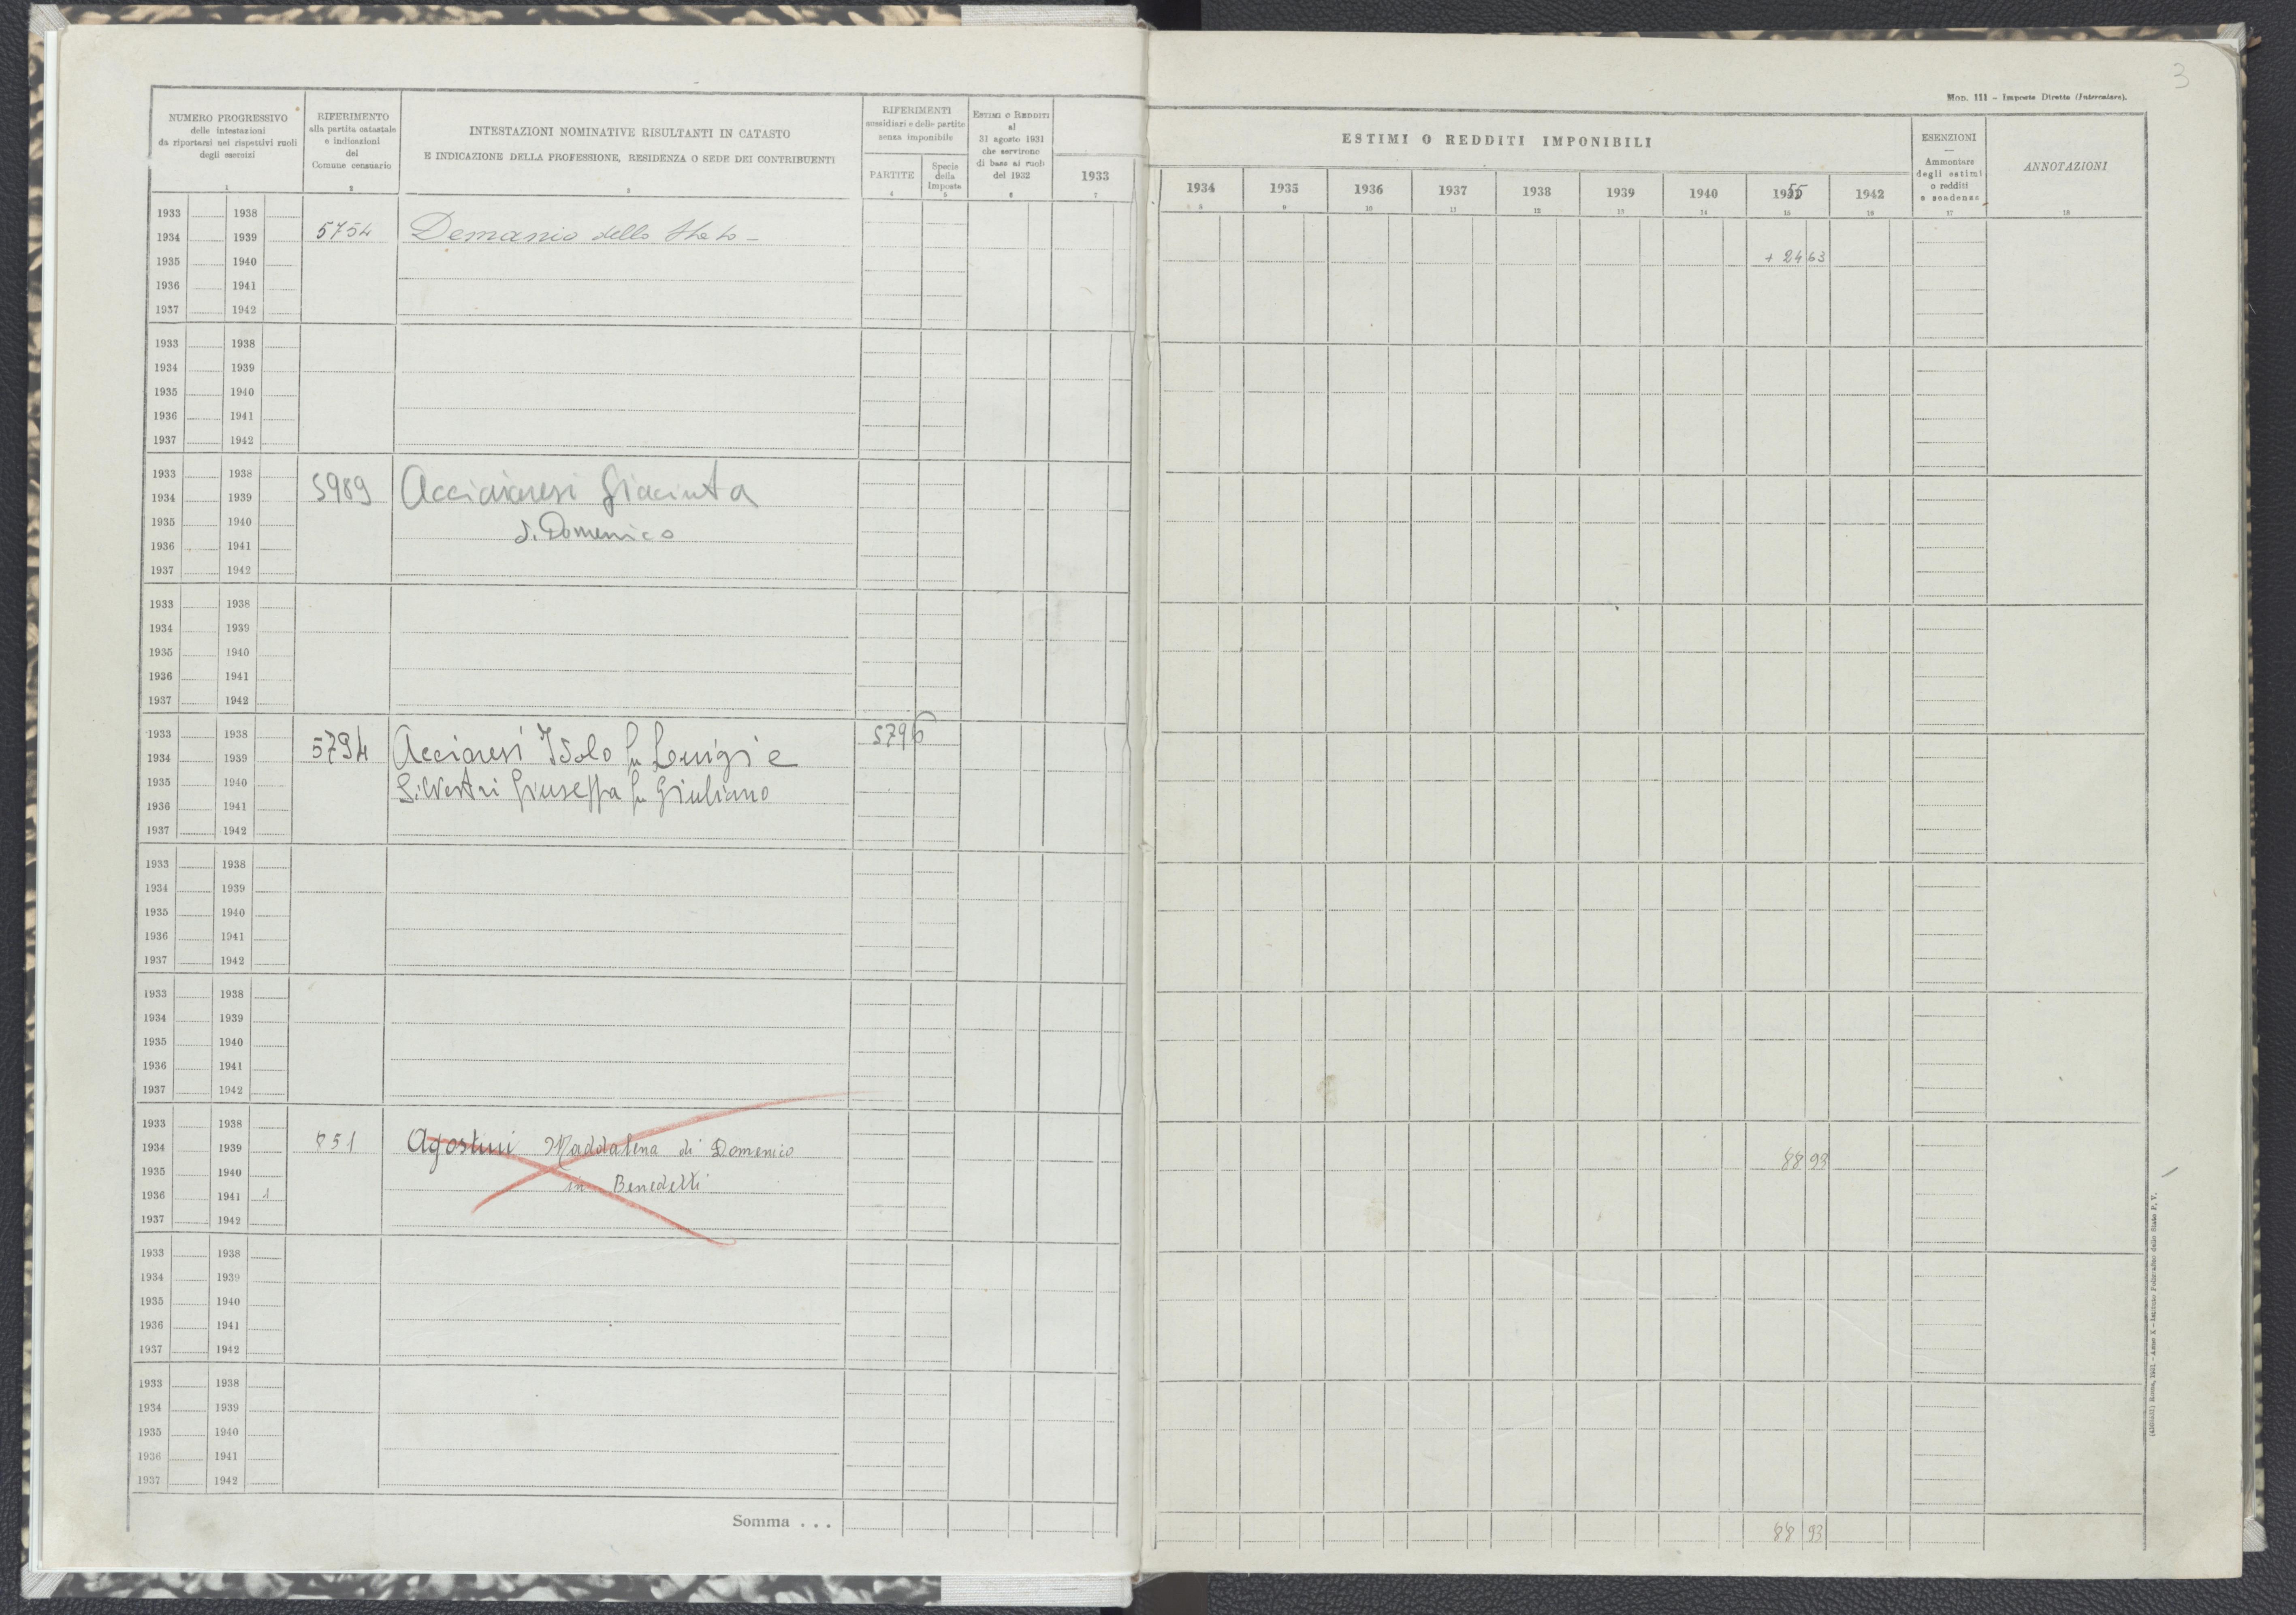 3
Mod. 111 – Imposte Dirette (Intercalare).
NUMERO PROGRESSIVO
delle intestazioni
da riportarsi nei rispettivi ruoli
degli esercizi
1
RIFERIMENTO
alla partita catastale
e indicazioni
del
Comune censuario
2
INTESTAZIONI NOMINATIVE RISULTANTI IN CATASTO
E INDICAZIONE DELLA PROFESSIONE, RESIDENZA O SEDE DEI CONTRIBUENTI
3
RIFERIMENTI
sussidiari e delle partite
senza imponibile
PARTITE
4
Specie
della
Imposta
5
ESTIMI O REDDITI
al
31 agosto 1931
che servirono
di base ai ruoli
del 1932
6
ESTIMI O REDDITI IMPONIBILI
1933 1934 1935 1936 1937 1938 1939 1940 1955 1942
7 8 9 10 11 12 13 14 15 16
ESENZIONI
—
Ammontare
degli estimi
o redditi
e scadenze
17
ANNOTAZIONI
18
1933 1938
1934 1939 5754 Demanio dello Stato –
1935 1940 + 24 63
1936 1941
1937 1942
1933 1938
1934 1939
1935 1940
1936 1941
1937 1942
1933 1938
1934 1939 5989 Acciaresi Giacinta
1935 1940 di Domenico
1936 1941
1937 1942
1933 1938
1934 1939
1935 1940
1936 1941
1937 1942
1933 1938 5796
1934 1939 5794 Acciaresi Isolo fu Luigi e
1935 1940 Silvestri Giuseppa fu Giuliano
1936 1941
1937 1942
1933 1938
1934 1939
1935 1940
1936 1941
1937 1942
1933 1938
1934 1939
1935 1940
1936 1941
1937 1942
1933 1938
1934 1939 851 Agostini Maddalena di Domenico 88 93
1935 1940
1936 1941 1 in Benedetti
1937 1942
1933 1938
1934 1939
1935 1940
1936 1941
1937 1942
1933 1938
1934 1939
1935 1940
1936 1941
1937 1942
Somma . . . 88 93
Roma, 1931 - Anno X - Istituto Poligrafico dello Stato P. V.